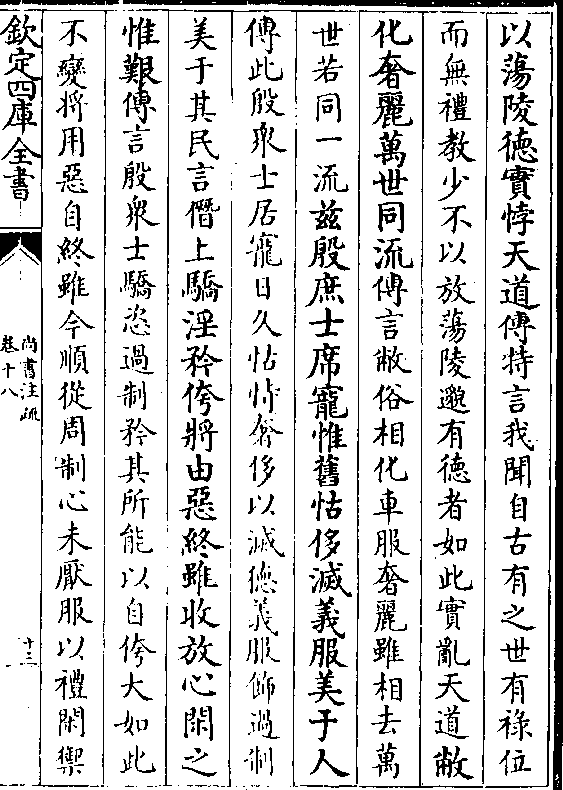 以蕩陵德實悖天道傳特言我聞自古有之世有祿位
而無禮教少不以放蕩陵邈有德者如此實亂天道敝
化奢麗萬世同流傳言敝俗相化車服奢麗雖相去萬
世若同一流兹殷庶士席寵惟舊怙侈滅義服美于人
傳此殷衆士居寵日久怙恃奢侈以滅德義服飾過制
美于其民言僭上驕淫矜侉將由惡終雖收放心閑之
惟艱傳言殷衆士驕恣過制矜其所能以自侉大如此
不變將用惡自終雖今順從周制心未厭服以禮閑禦
欽定四庫全書
尚書注疏
卷十八
十三